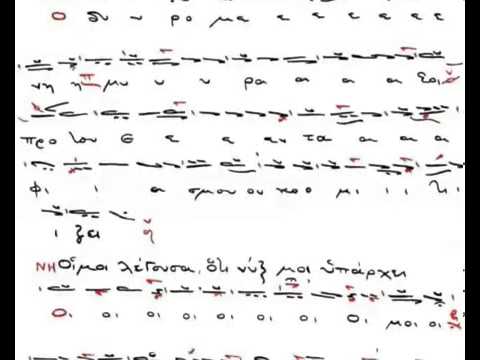 Ο δυ υ ρο με ε ε ε ε ε
νη η μυ υ υ ρα α α α α σοι
προ του ε ε ε εν τα α α α
φι ι α σμου ου κο ο μι ι ι
ι ζει
ΝΗ Οἴμοι λέγουσα, ὅτι νύξ μοι ὑπάρχει
Οι οι οι οι οι οι οι μοι οι